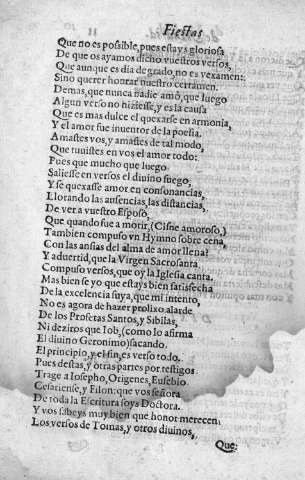 Fiestas
Que no es possible, pues estays gloriosa
De que os ayamos dicho vuestros versos,
Que aunque es dia de grado, no es vexamen:
Sino querer honrar nuestro certamen.
Demas, que nunca nadie amò, que luego
Algun verso no hiziesse, y es la causa
Que es mas dulce el quexarse en armonia,
Y el amor fue inuentor de la poesia.
Amastes vos, y amastes de tal modo,
Que tuuistes en vos el amor todo:
Pues que mucho que luego
Saliesse en versos el diuino fuego,
Y se quexasse amor en consonancias,
Llorando las ausencias, las distancias,
De ver a vuestro Esposo,
Que quando fue a morir, (Cisne amoroso,)
Tambien compuso vn Hymno sobre cena,
Con las ansias del alma de amor llena?
Y aduertid, que la Virgen Sacrosanta
Compuso versos, que oy la Iglesia canta,
Mas bien se yo que estays bien satisfecha
De la excelencia suya, que mi intento,
No es agora de hazer prolixo alarde
De los Profetas Santos, y Sibilas,
Ni deziros que Iob, (como lo afirma
El diuino Geronimo) sacando.
El principio, y el fin, es verso todo.
Pues destas, y otras partes por testigos
Trage a Iosepho, Origenes, Eusebio
Cesariense, y Filon: que vos señora
De toda la Escritura soys Doctora.
Y vos sabeys muy bien que honor merecen
Los versos de Tomas, y otros diuinos,
Que: